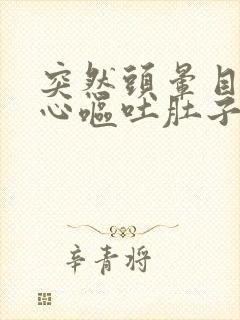 突然頭暈目
心嘔吐肚子
辛青将